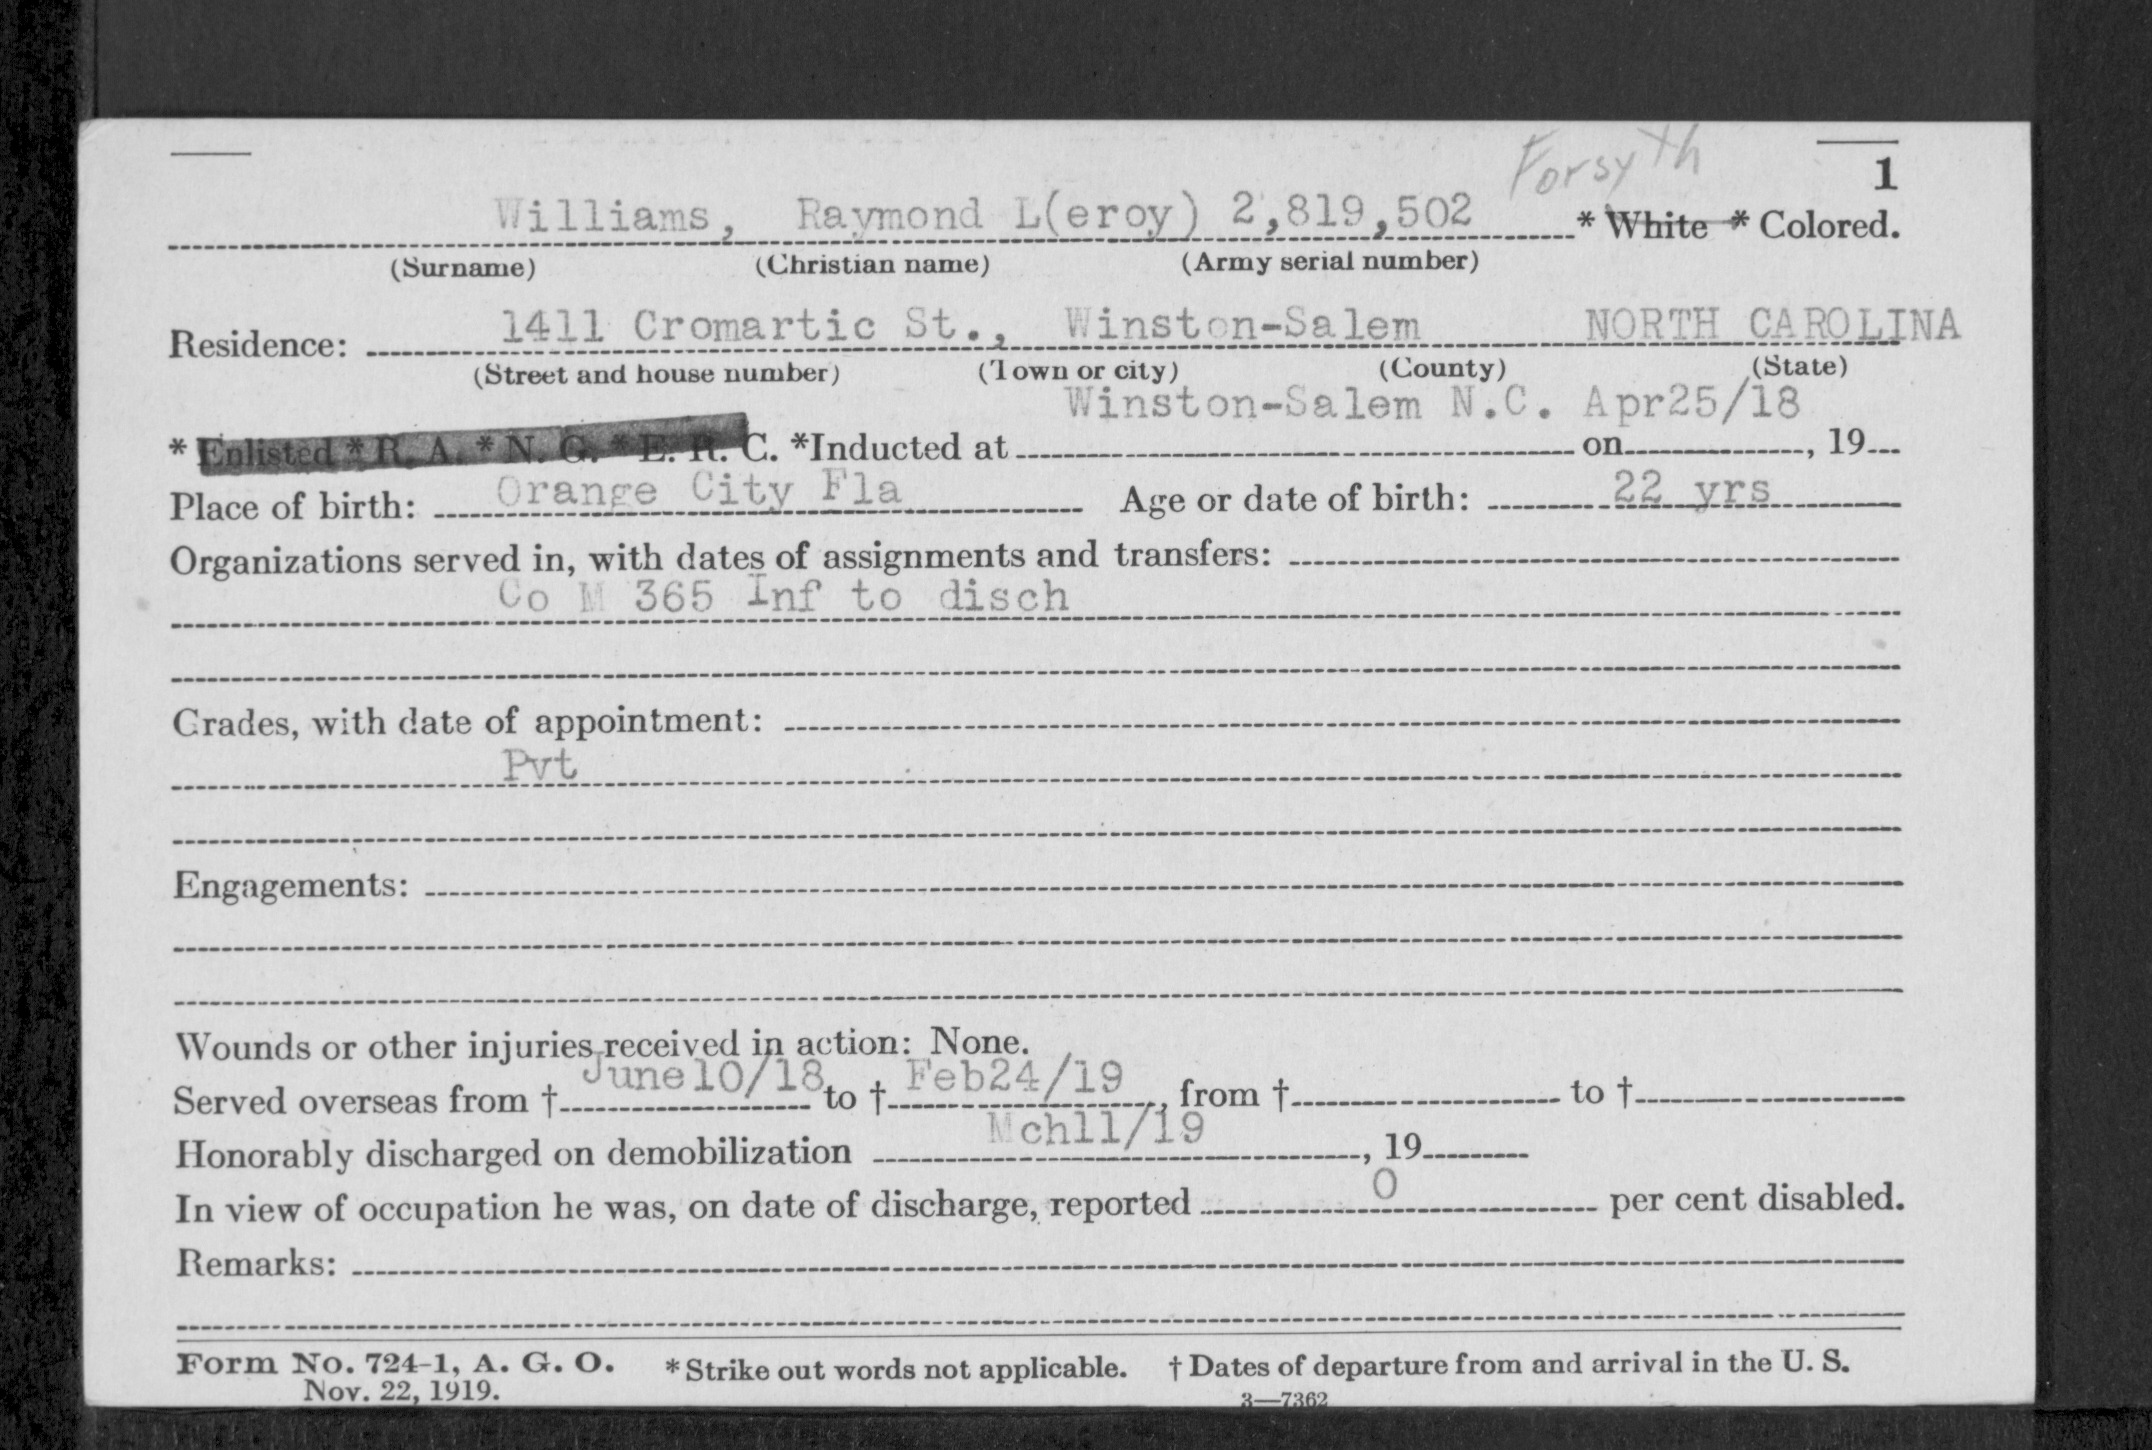 Forsyth
1
Williams, Raymond L(eroy) 2,819,502 * White * Colored.
(Surname) (Christian name) (Army serial number)
Residence: 1411 Cromartic St., Winston-Salem NORTH CAROLINA
(Street and house number) (Town or city) (County) (State)
Winston-Salem N.C. Apr25/18
* Enlisted * R. A. * N. G. * E. R. C. *Inducted at on , 19
Place of birth: Orange City Fla Age or date of birth: 22 yrs
Organizations served in, with dates of assignments and transfers:
Co M 365 Inf to disch
Grades, with date of appointment:
Pvt
Engagements:
Wounds or other injuries received in action: None.
Served overseas from † June10/18 to † Feb24/19, from † to †
Honorably discharged on demobilization Mch11/19, 19
In view of occupation he was, on date of discharge, reported 0 per cent disabled.
Remarks:
Form No. 724-1, A. G. O. * Strike out words not applicable. † Dates of departure from and arrival in the U. S.
Nov. 22, 1919. 3—7362